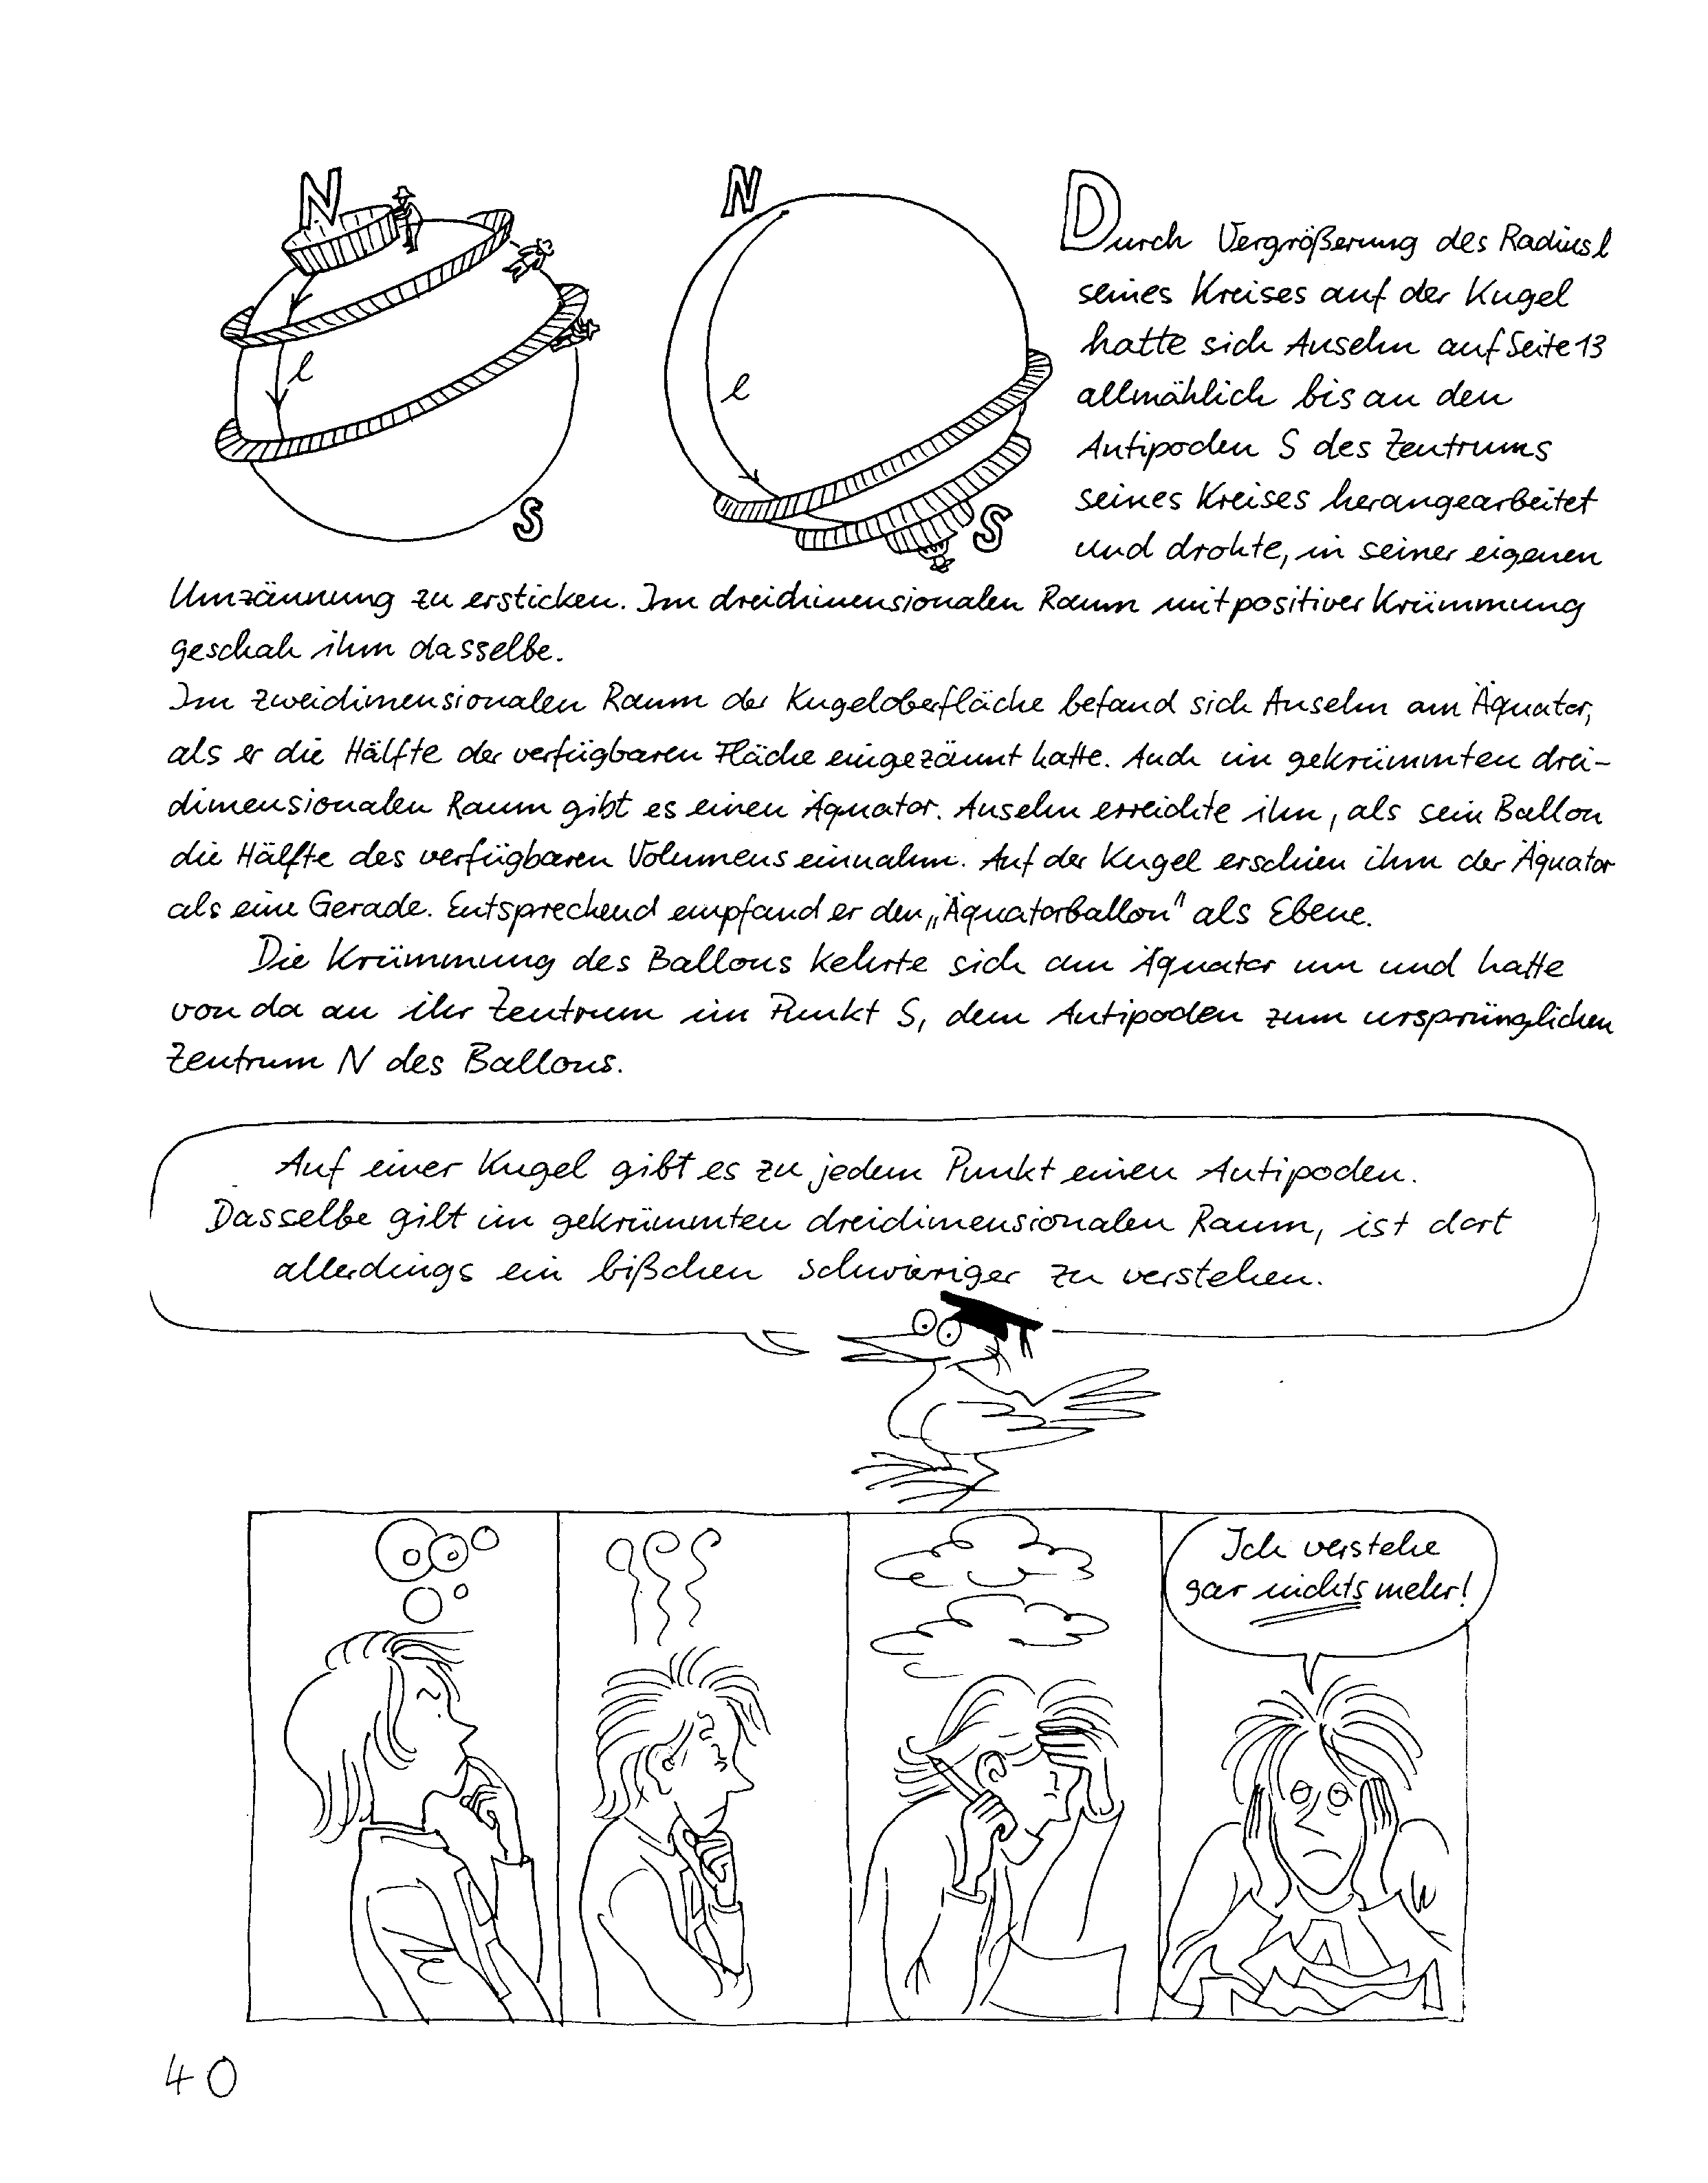 N
l
S
N
l
S
Durch Vergrößerung des Radius l
seines Kreises auf der Kugel
hatte sich Anselm auf Seite 13
allmählich bis an den
Antipoden S des Zentrums
seines Kreises herangearbeitet
und drohte, in seiner eigenen
Umzäunung zu ersticken. Im dreidimensionalen Raum mit positiver Krümmung
geschah ihm dasselbe.
Im zweidimensionalen Raum der Kugeloberfläche befand sich Anselm am Äquator,
als er die Hälfte der verfügbaren Fläche eingezäunt hatte. Auch im gekrümmten drei-
dimensionalen Raum gibt es einen Äquator. Anselm erreichte ihn, als sein Ballon
die Hälfte des verfügbaren Volumens einnahm. Auf der Kugel erschien ihm der Äquator
als eine Gerade. Entsprechend empfand er den „Äquatorballon" als Ebene.
Die Krümmung des Ballons kehrte sich am Äquator um und hatte
von da an ihr Zentrum im Punkt S, dem Antipoden zum ursprünglichen
Zentrum N des Ballons.
Auf einer Kugel gibt es zu jedem Punkt einen Antipoden.
Dasselbe gilt im gekrümmten dreidimensionalen Raum, ist dort
allerdings ein bißchen schwieriger zu verstehen.
Ich verstehe
gar nichts mehr!
40